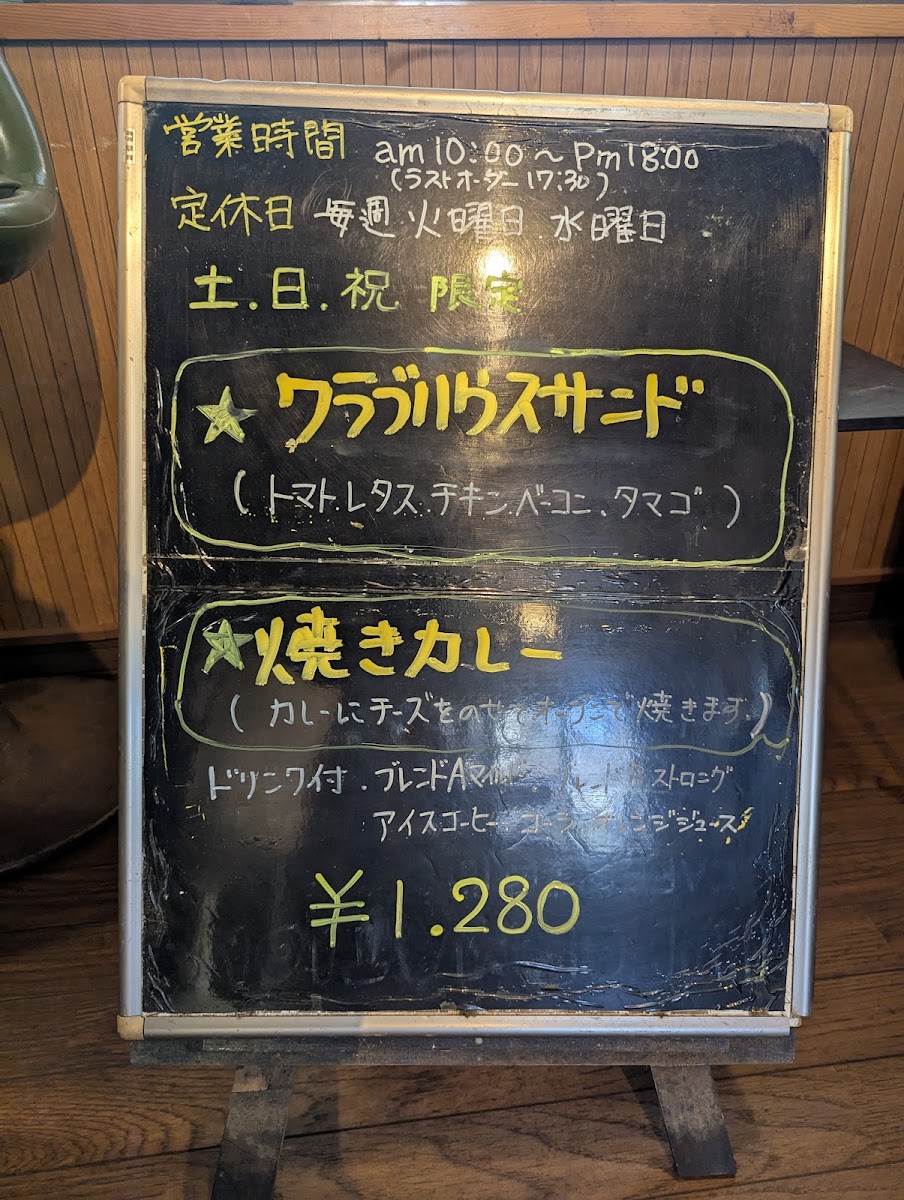 営業時間 am10:00～Pm18:00
(ラストオーダー17:30)
定休日 毎週 火曜日.水曜日
土.日.祝 限定
★クラブハウスサンド
(トマト.レタス.チキン.ベーコン.タマゴ)
★焼きカレー
(カレーにチーズをのせてオーブンで焼きます.)
ドリンク付.ブレンドAマイルド.ブレンドBストロング
アイスコーヒー.コーラ.オレンジジュース
￥1.280